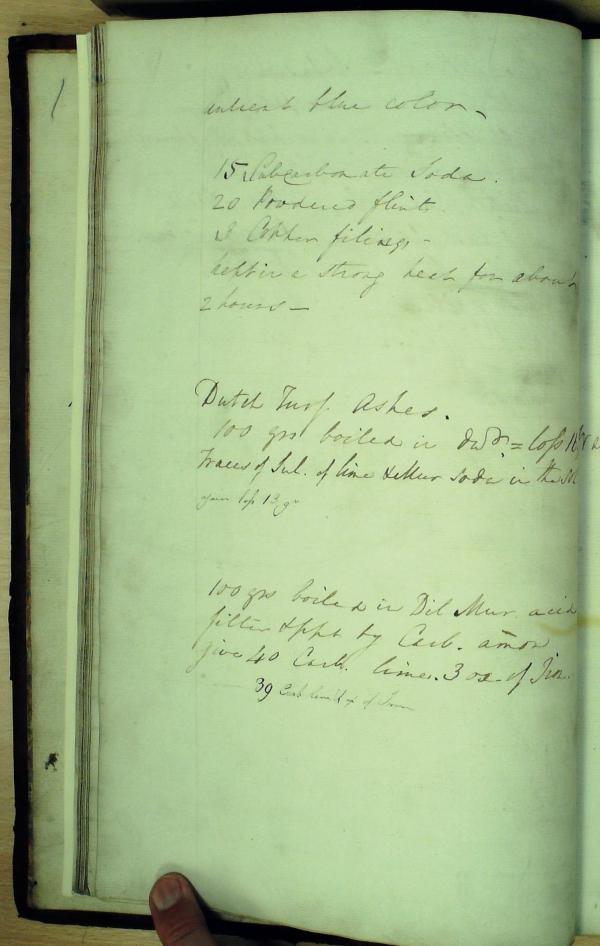 blue color -
15 Subcarbonate Soda.
20 Powdered flint
3 Copper filings -
kept in a strong heat for about
2 hours -
Dutch Turf Ashes.
100 grs boiled in = loss
Traces of Sul. of lime & Mur soda in the
again loss 13 gr
100 grs boiled in Dil Mur. acid
filter & ppt by Carb. amon
give 40 Carb. lime. 3 ox. of Iron.
39 Carb lime ox of Iron